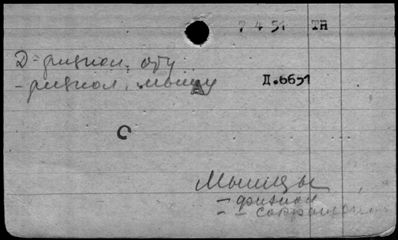 7 4 51 TH
Д-физиол. обу
- физиол. мышц II.6651
A
C
Мышцы
- физиол
- сокращен